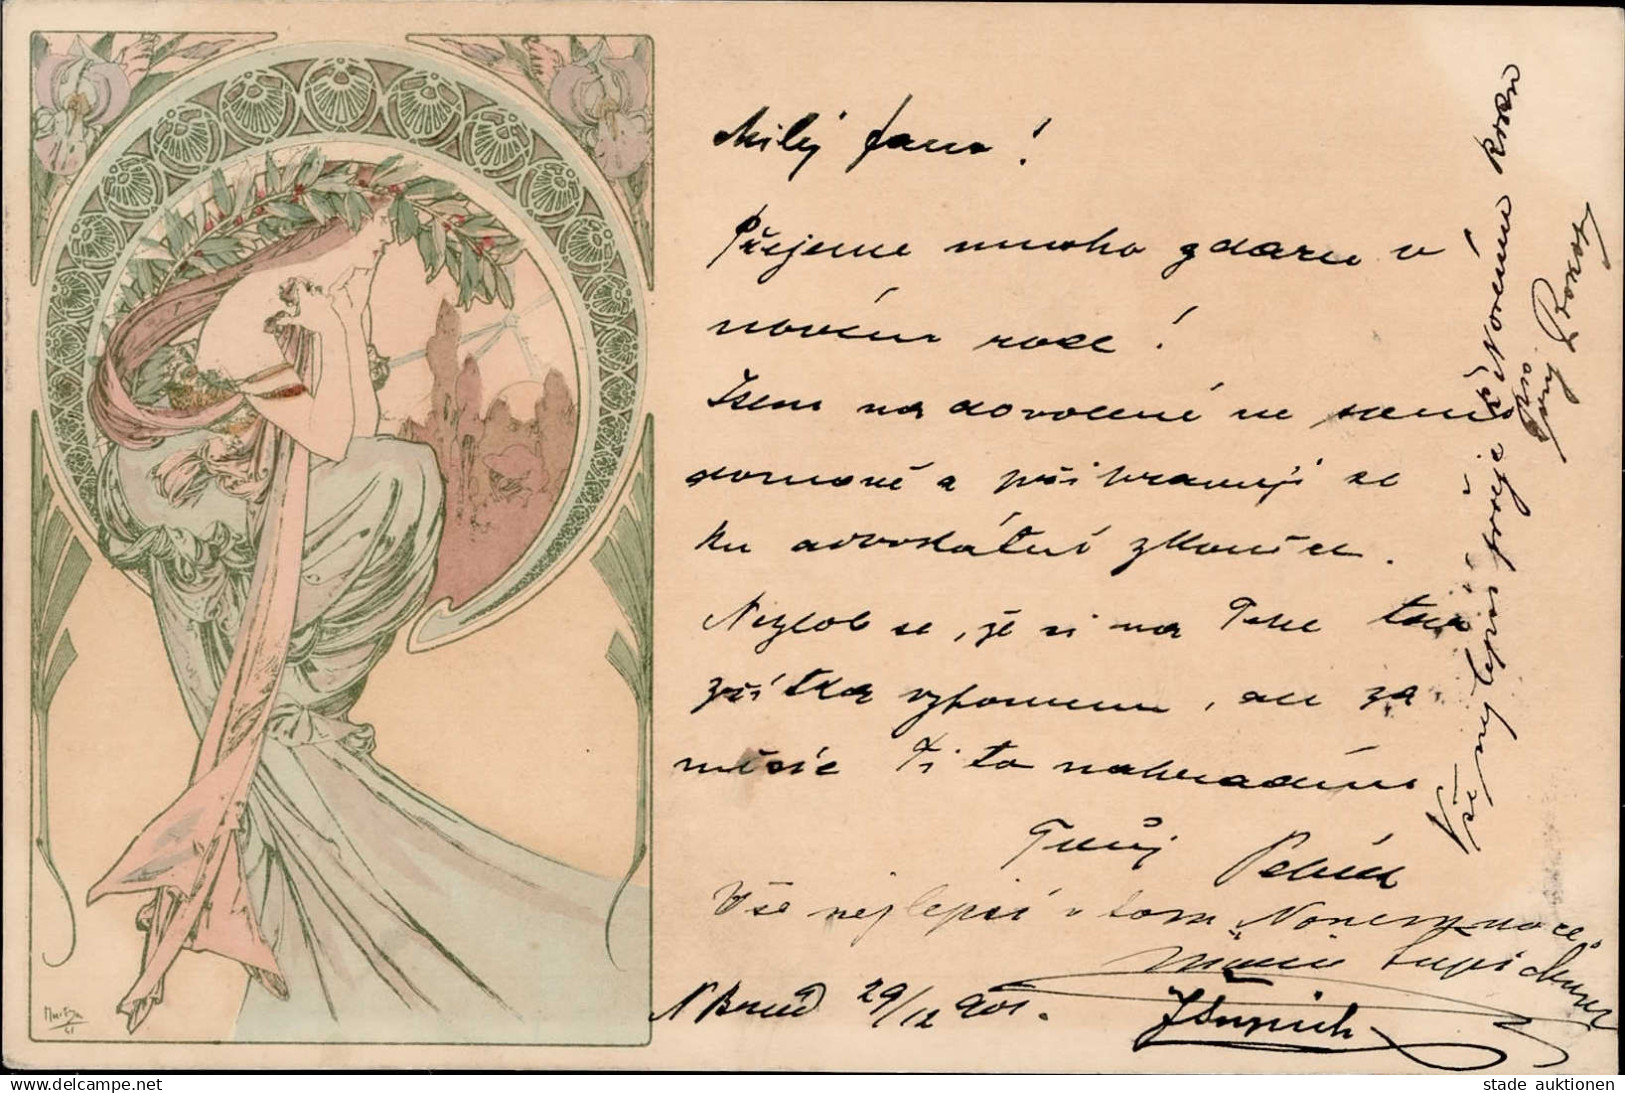 Milý Jano!
Přejeme mnoho zdaru v
novém roce!
Jsem na dovolené ve
domově a připravuji se
ku advokátní zkoušce.
Nezlob se, že si na Tebe
zřídka vzpomenu, ale za
měsíc Ti to nahradíme
Tvůj
Vše nejlepší v tom Novém roce.
N Brod 29/12 901.
Vše nejlepší přeje k Novému roku
Mucha
stade auktionen